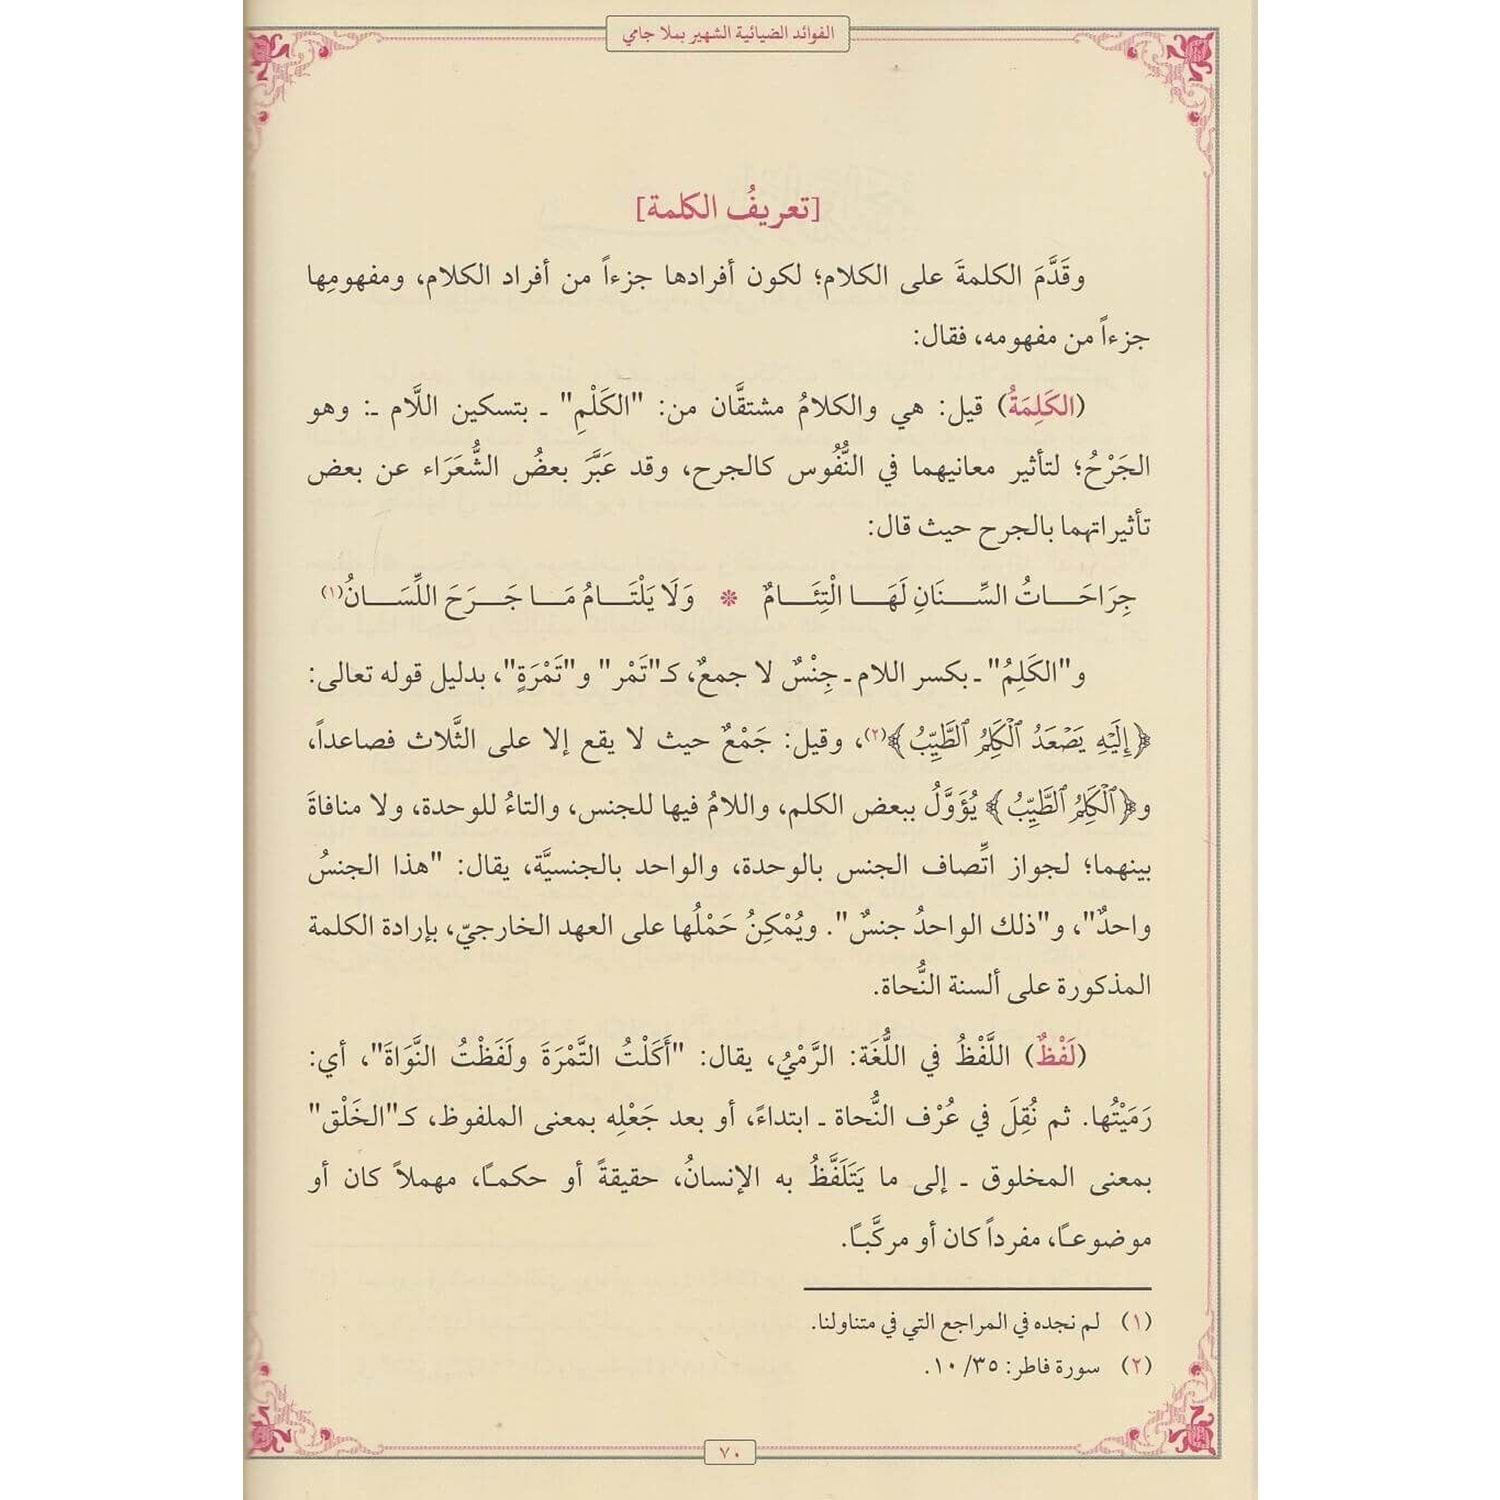 الفوائد الضيائية الشهير بملا جامي
[تعريفُ الكلمة]
وقَدَّمَ الكلمةَ على الكلام؛ لكون أفرادها جزءاً من أفراد الكلام، ومفهومِها
جزءاً من مفهومه، فقال:
(الكَلِمَةُ) قيل: هي والكلامُ مشتقَّان من: "الكَلْمِ" ـ بتسكين اللَّام ـ: وهو
الجَرْحُ؛ لتأثير معانيهما في النُّفُوس كالجرح، وقد عَبَّرَ بعضُ الشُّعَرَاء عن بعض
تأثيراتهما بالجرح حيث قال:
جِرَاحَـــاتُ السِّـــنَانِ لَهَـــا الْتِئَـــامٌ * وَلَا يَلْتَـــامُ مَـــا جَـــرَحَ اللِّسَـــانُ(١)
و"الكَلِمُ" ـ بكسر اللام ـ جِنْسٌ لا جمعٌ، كـ"تَمْر" و"تَمْرَةٍ"، بدليل قوله تعالى:
﴿إِلَيْهِ يَصْعَدُ ٱلْكَلِمُ ٱلطَّيِّبُ﴾(٢)، وقيل: جَمْعٌ حيث لا يقع إلا على الثَّلاث فصاعداً،
و﴿ٱلْكَلِمُ ٱلطَّيِّبُ﴾ يُؤَوَّلُ ببعض الكلم، واللامُ فيها للجنس، والتاءُ للوحدة، ولا منافاةَ
بينهما؛ لجواز اتِّصاف الجنس بالوحدة، والواحد بالجنسيَّة، يقال: "هذا الجنسُ
واحدٌ"، و"ذلك الواحدُ جنسٌ". ويُمْكِنُ حَمْلُها على العهد الخارجيّ، بإرادة الكلمة
المذكورة على ألسنة النُّحاة.
(لَفْظٌ) اللَّفْظُ في اللُّغَة: الرَّمْيُ، يقال: "أَكَلْتُ التَّمْرَةَ ولَفَظْتُ النَّوَاةَ"، أي:
رَمَيْتُها. ثم نُقِلَ في عُرْف النُّحاة ـ ابتداءً، أو بعد جَعْلِه بمعنى الملفوظ، كـ"الخَلْق"
بمعنى المخلوق ـ إلى ما يَتَلَفَّظُ به الإنسانُ، حقيقةً أو حكمـًا، مهملاً كان أو
موضوعـًا، مفرداً كان أو مركَّبـًا.
(١) لم نجده في المراجع التي في متناولنا.
(٢) سورة فاطر: ٣٥/ ١٠.
٧٠